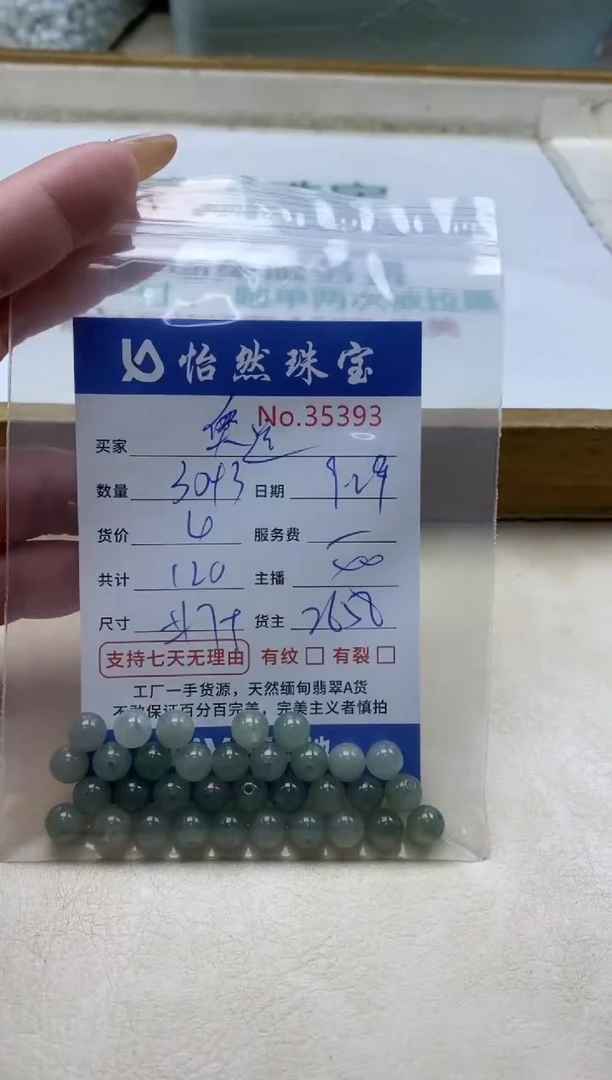 怡然珠宝
No.35393
买家 奥运
数量 30+3 日期 9.29
货价 4 服务费
共计 120 主播
尺寸 货主 2658
支持七天无理由 有纹 有裂
工厂一手货源，天然缅甸翡翠A货
不敢保证百分百完美，完美主义者慎拍